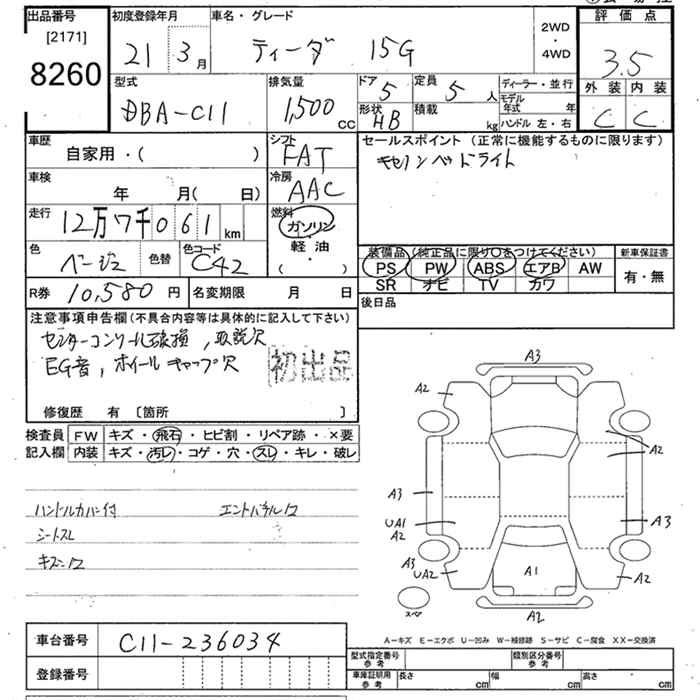 出品番号
[2171]
8260
初度登録年月
21 3月
車名・グレード
ティーダ 15G
2WD
・
4WD
評価点
3.5
外装 内装
C C
型式
DBA-C11
排気量
1,500 cc
ドア
5
定員
5 人
形状
HB
積載
kg
ディーラー・並行
モデル年式 年
ハンドル 左・右
車歴
自家用・( )
シフト
FAT
車検
年 月( 日)
冷房
AAC
走行
12万7千061km
燃料
ガソリン
軽・油
( ・ )
色
ベージュ
色替
色コード
C42
R券 10,580 円
名変期限 月 日
セールスポイント(正常に機能するものに限ります)
キセノンヘッドライト
装備品(純正品に限り○をつけてください)
PS PW ABS エアB AW
SR ナビ TV カワ
新車保証書
有・無
後日品
注意事項申告欄(不具合内容等は具体的に記入して下さい)
センターコンソール破損，取説欠
EG音，ホイールキャップ欠
初出品
修復歴 有 〔箇所 〕
検査員
記入欄
FW キズ・飛石・ヒビ割・リペア跡・×要
内装 キズ・汚レ・コゲ・穴・スレ・キレ・破レ
ハンドルカバー付
シートスレ
A3
A2
A2
A3
UA1
A2
A3
A3
UA2
A1
A2
A2
スペア
A－キズ E－エクボ U－凹み W－補修跡 S－サビ C－腐食 XX－交換済
車台番号 C11-236034
登録番号
型式指定番号
参考
類別区分番号
参考
車庫証明用
参考
長さ cm
幅 cm
高さ cm